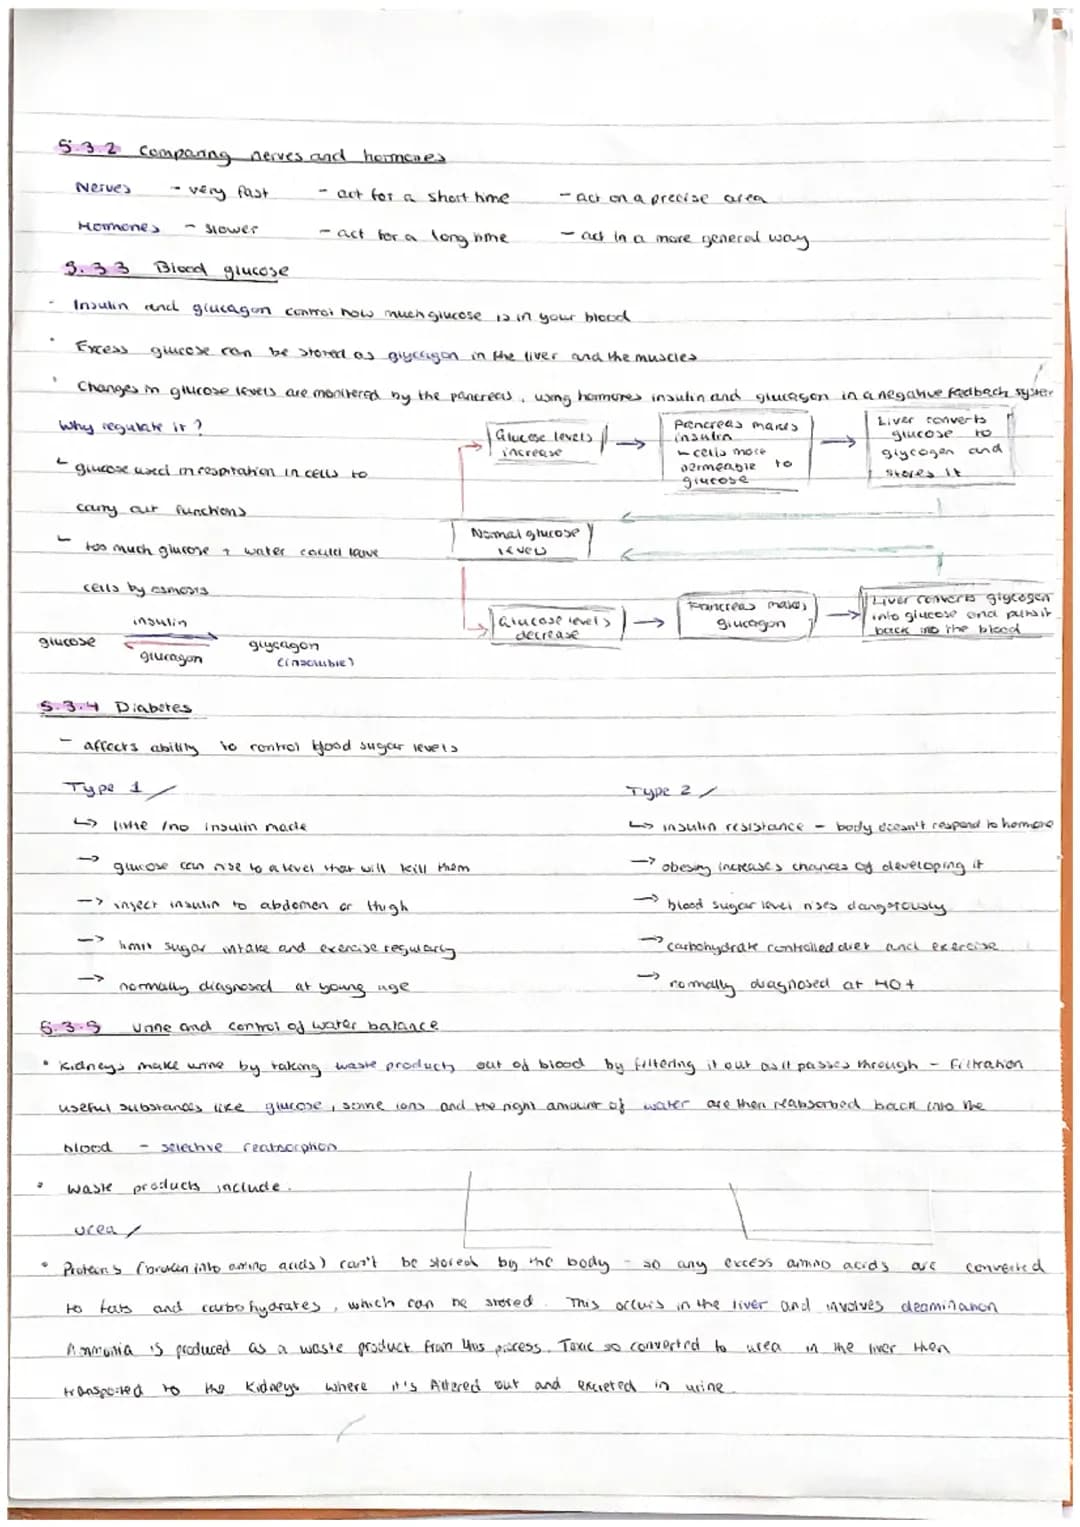 5.3.2 Comparing nerves and hormones
Nerves - very fast - act for a short time - act on a precise area
Hormones - slower - act for a long time - act in a more general way
5.3.3 Blood glucose
- Insulin and glucagon control how much glucose is in your blood
• Excess glucose can be stored as glycogen in the liver and the muscles
• Changes in glucose levels are monitered by the pancreas, using hormones insulin and glucagon in a negative feedback system
Why regulate it?
↳ glucose used in respiration in cells to
carry out functions
↳ too much glucose, water could leave
cells by osmosis
insulin
glucose glycogen
glucagon (insoluble)
Glucose levels
increase
Pancreas makes
insulin
↳ cells more
permeable to
glucose
Liver converts
glucose to
glycogen and
stores it
Normal glucose
levels
Glucose levels
decrease
Pancreas makes
glucagon
Liver converts glycogen
into glucose and puts it
back into the blood
5.3.4 Diabetes
- affects ability to control blood sugar levels
Type 1 /
↳ little /no insulin made
→ glucose can rise to a level that will kill them
→ inject insulin to abdomen or thigh
→ limit sugar intake and exercise regularly
→ normally diagnosed at young age
Type 2 /
↳ insulin resistance - body doesn't respond to hormone
→ obesity increases chances of developing it
→ blood sugar level rises dangerously
→ carbohydrate controlled diet and exercise
→ normally diagnosed at 40+
5.3.5 Urine and control of water balance
• Kidneys make urine by taking waste products out of blood by filtering it out as it passes through - filtration
useful substances like glucose, some ions and the right amount of water are then reabsorbed back into the
blood - selective reabsorption
• waste products include.
urea /
• Proteins (broken into amino acids) can't be stored by the body - so any excess amino acids are converted
to fats and carbohydrates, which can be stored. This occurs in the liver and involves deamination
Ammonia is produced as a waste product from this process. Toxic so converted to urea in the liver then
transported to the kidneys where it's filtered out and excreted in urine.